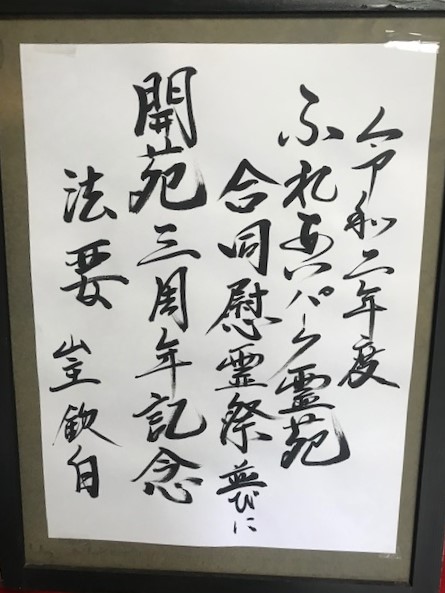 令和二年度
ふれあいパーク霊苑
合同慰霊祭並びに
開苑三周年記念
法要 山主 敬白